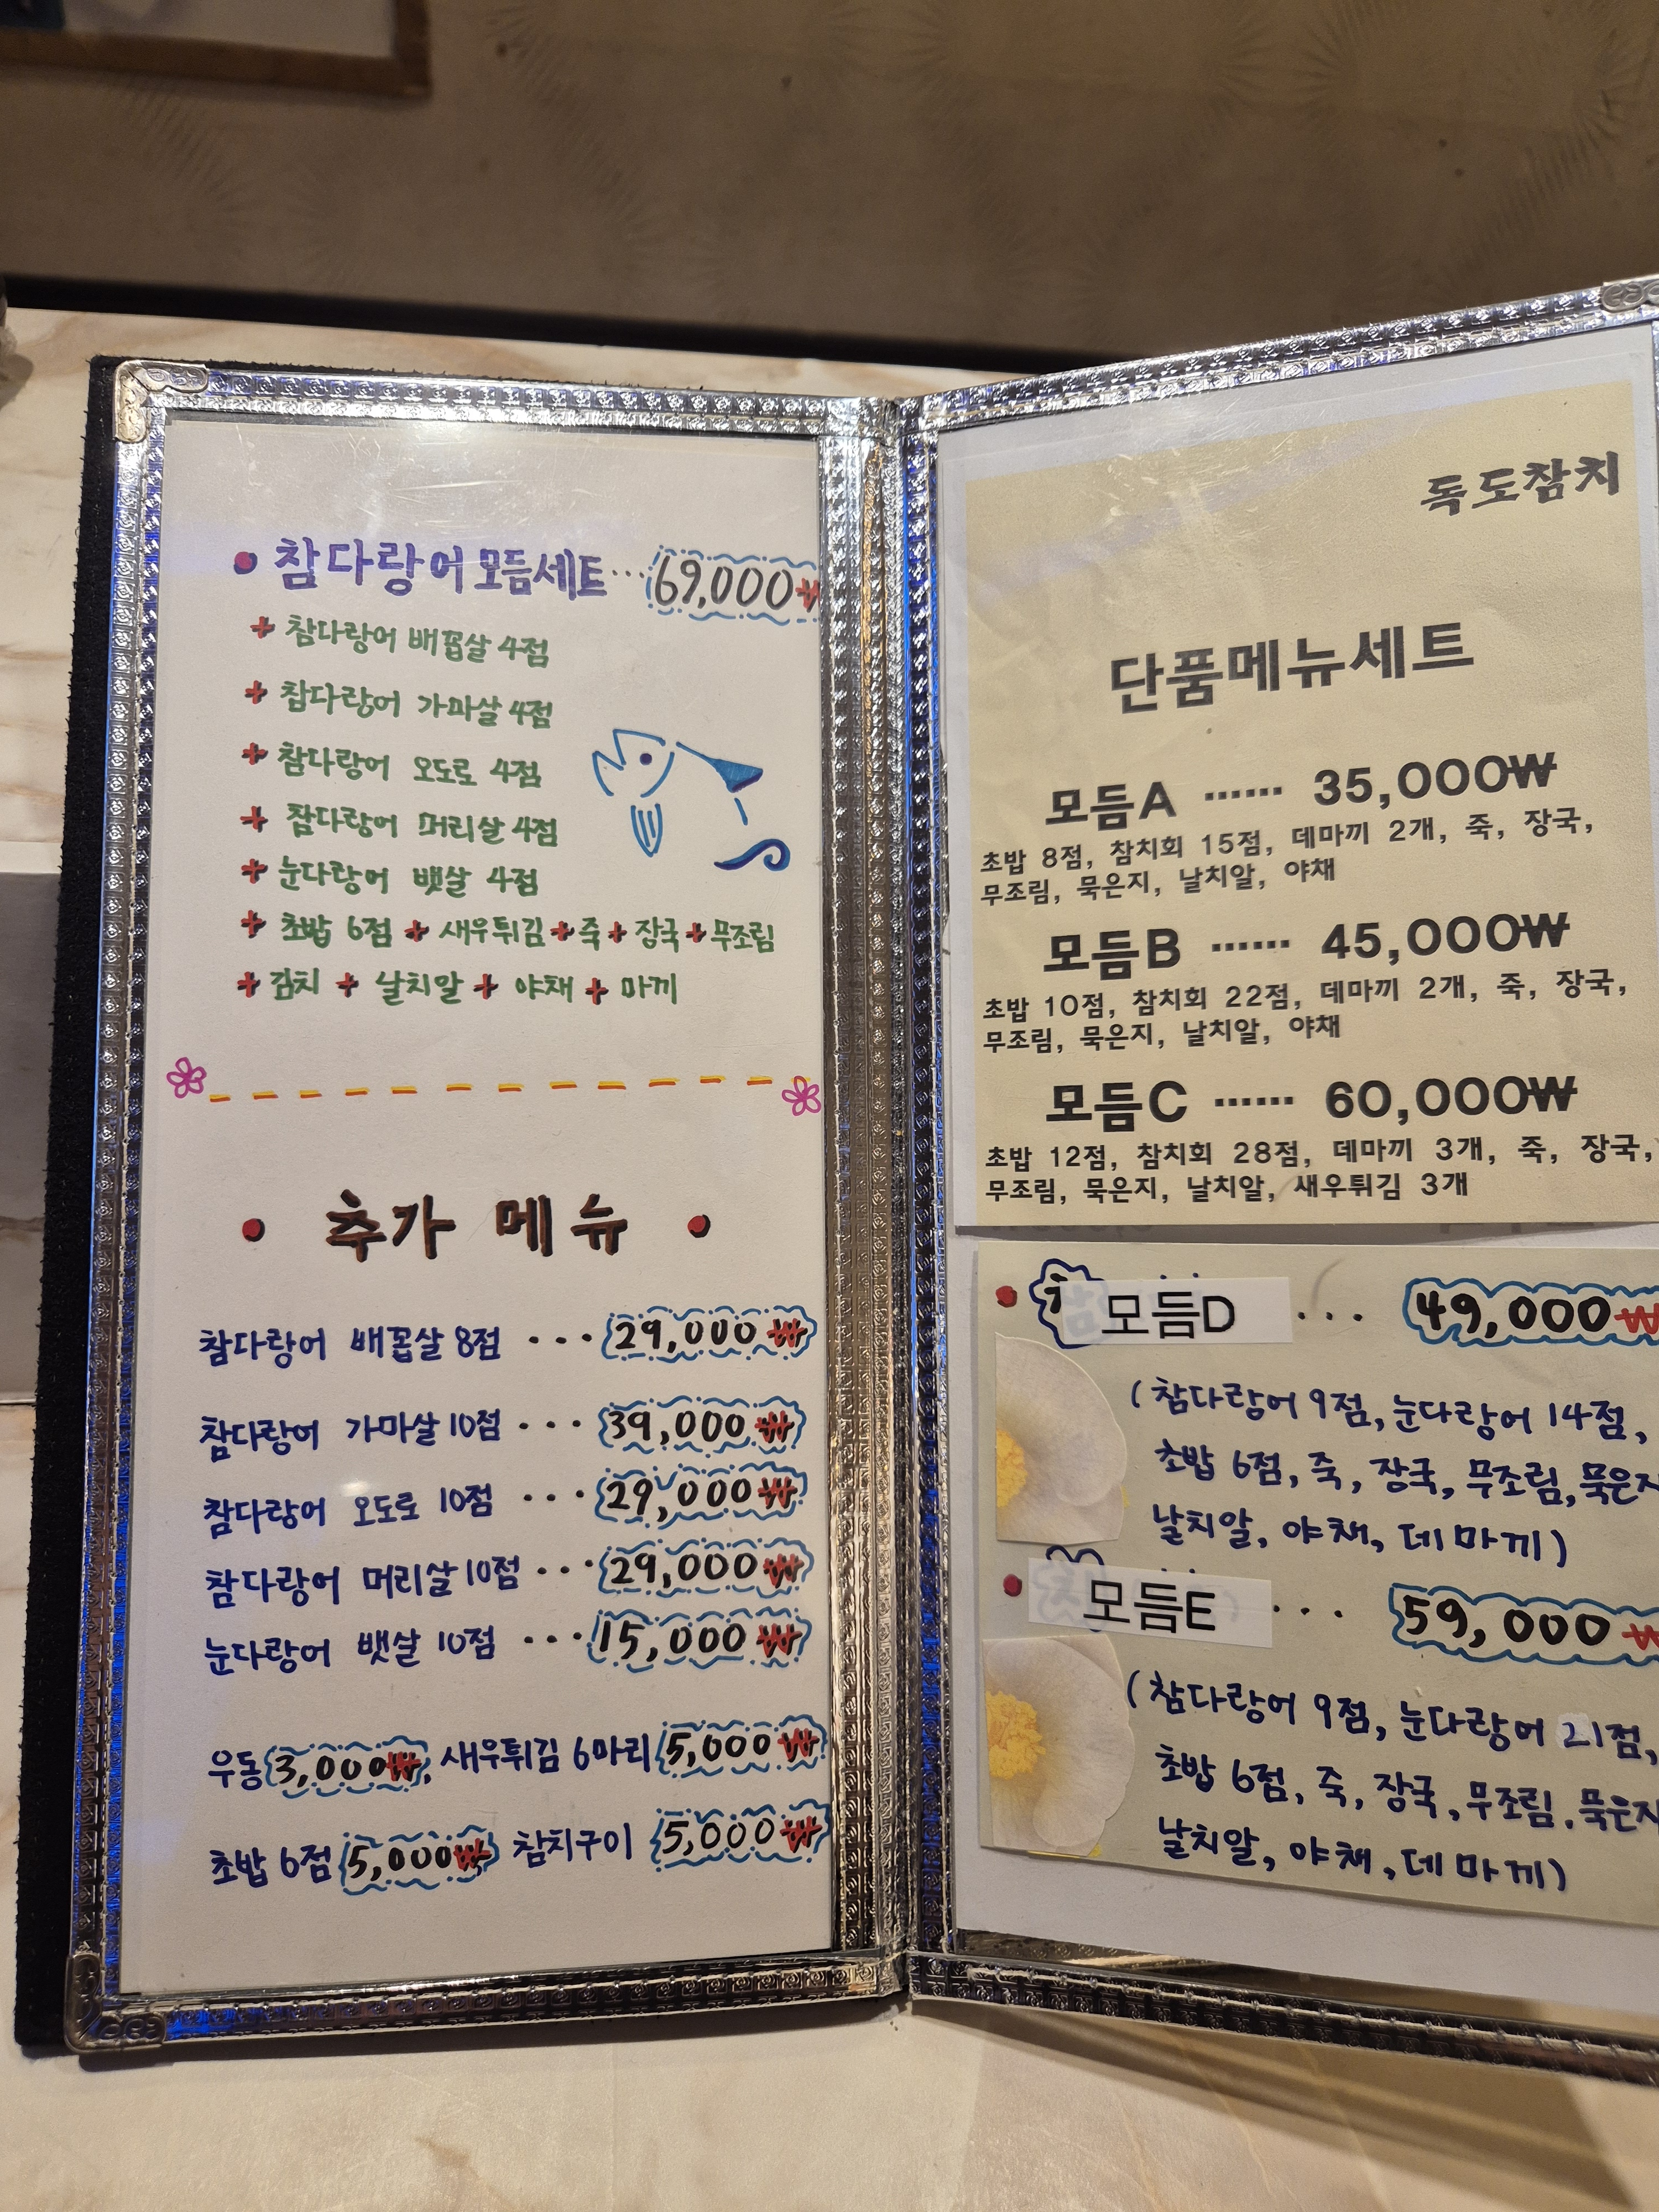 • 참다랑어 모듬세트 ... 69,000₩
+ 참다랑어 배꼽살 4점
+ 참다랑어 가마살 4점
+ 참다랑어 오도로 4점
+ 참다랑어 머리살 4점
+ 눈다랑어 뱃살 4점
+ 초밥 6점 + 새우튀김 + 죽 + 장국 + 무조림
+ 김치 + 날치알 + 야채 + 마끼
• 추가 메뉴 •
참다랑어 배꼽살 8점 ... 29,000₩
참다랑어 가마살 10점 ... 39,000₩
참다랑어 오도로 10점 ... 29,000₩
참다랑어 머리살 10점 ... 29,000₩
눈다랑어 뱃살 10점 ... 15,000₩
우동 3,000₩, 새우튀김 6마리 5,000₩
초밥 6점 5,000₩ 참치구이 5,000₩
독도참치
단품메뉴세트
모듬A ...... 35,000₩
초밥 8점, 참치회 15점, 데마끼 2개, 죽, 장국,
무조림, 묵은지, 날치알, 야채
모듬B ...... 45,000₩
초밥 10점, 참치회 22점, 데마끼 2개, 죽, 장국,
무조림, 묵은지, 날치알, 야채
모듬C ...... 60,000₩
초밥 12점, 참치회 28점, 데마끼 3개, 죽, 장국,
무조림, 묵은지, 날치알, 새우튀김 3개
• 모듬D ... 49,000₩
(참다랑어 9점, 눈다랑어 14점,
초밥 6점, 죽, 장국, 무조림, 묵은지
날치알, 야채, 데마끼)
• 모듬E ... 59,000₩
(참다랑어 9점, 눈다랑어 21점,
초밥 6점, 죽, 장국, 무조림, 묵은지
날치알, 야채, 데마끼)